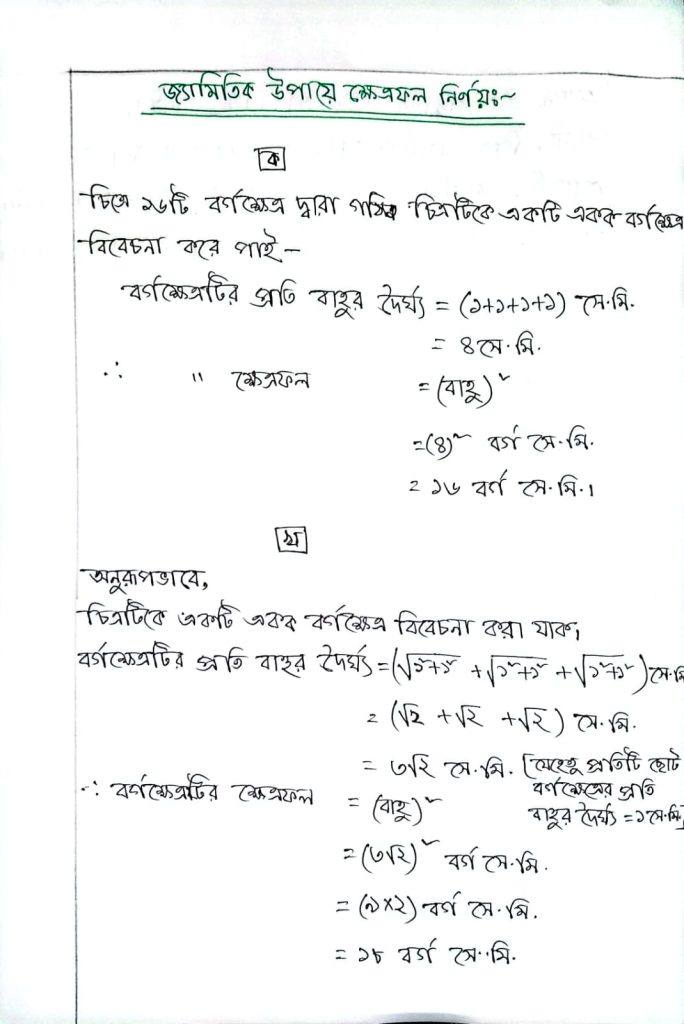 জ্যামিতিক উপায়ে ক্ষেত্রফল নির্ণয়ঃ~
ক
চিত্রে ১৬টি বর্গক্ষেত্র দ্বারা গঠিত চিত্রটিকে একটি একক বর্গক্ষেত্র
বিবেচনা করে পাই -
বর্গক্ষেত্রটির প্রতি বাহুর দৈর্ঘ্য = (১+১+১+১) সে.মি.
= ৪ সে.মি.
∴ " ক্ষেত্রফল = (বাহু)²
= (৪)² বর্গ সে.মি.
= ১৬ বর্গ সে.মি.।
খ
অনুরূপভাবে,
চিত্রটিকে একটি একক বর্গক্ষেত্র বিবেচনা করা যাক,
বর্গক্ষেত্রটির প্রতি বাহুর দৈর্ঘ্য = (√১²+১² + √১²+১² + √১²+১²) সে.মি
= (√২ + √২ + √২) সে.মি.
= ৩√২ সে.মি. [যেহেতু প্রতিটি ছোট
বর্গক্ষেত্রের প্রতি
বাহুর দৈর্ঘ্য = ১ সে.মি]
∴ বর্গক্ষেত্রটির ক্ষেত্রফল = (বাহু)²
= (৩√২)² বর্গ সে.মি.
= (৯×২) বর্গ সে.মি.
= ১৮ বর্গ সে.মি.